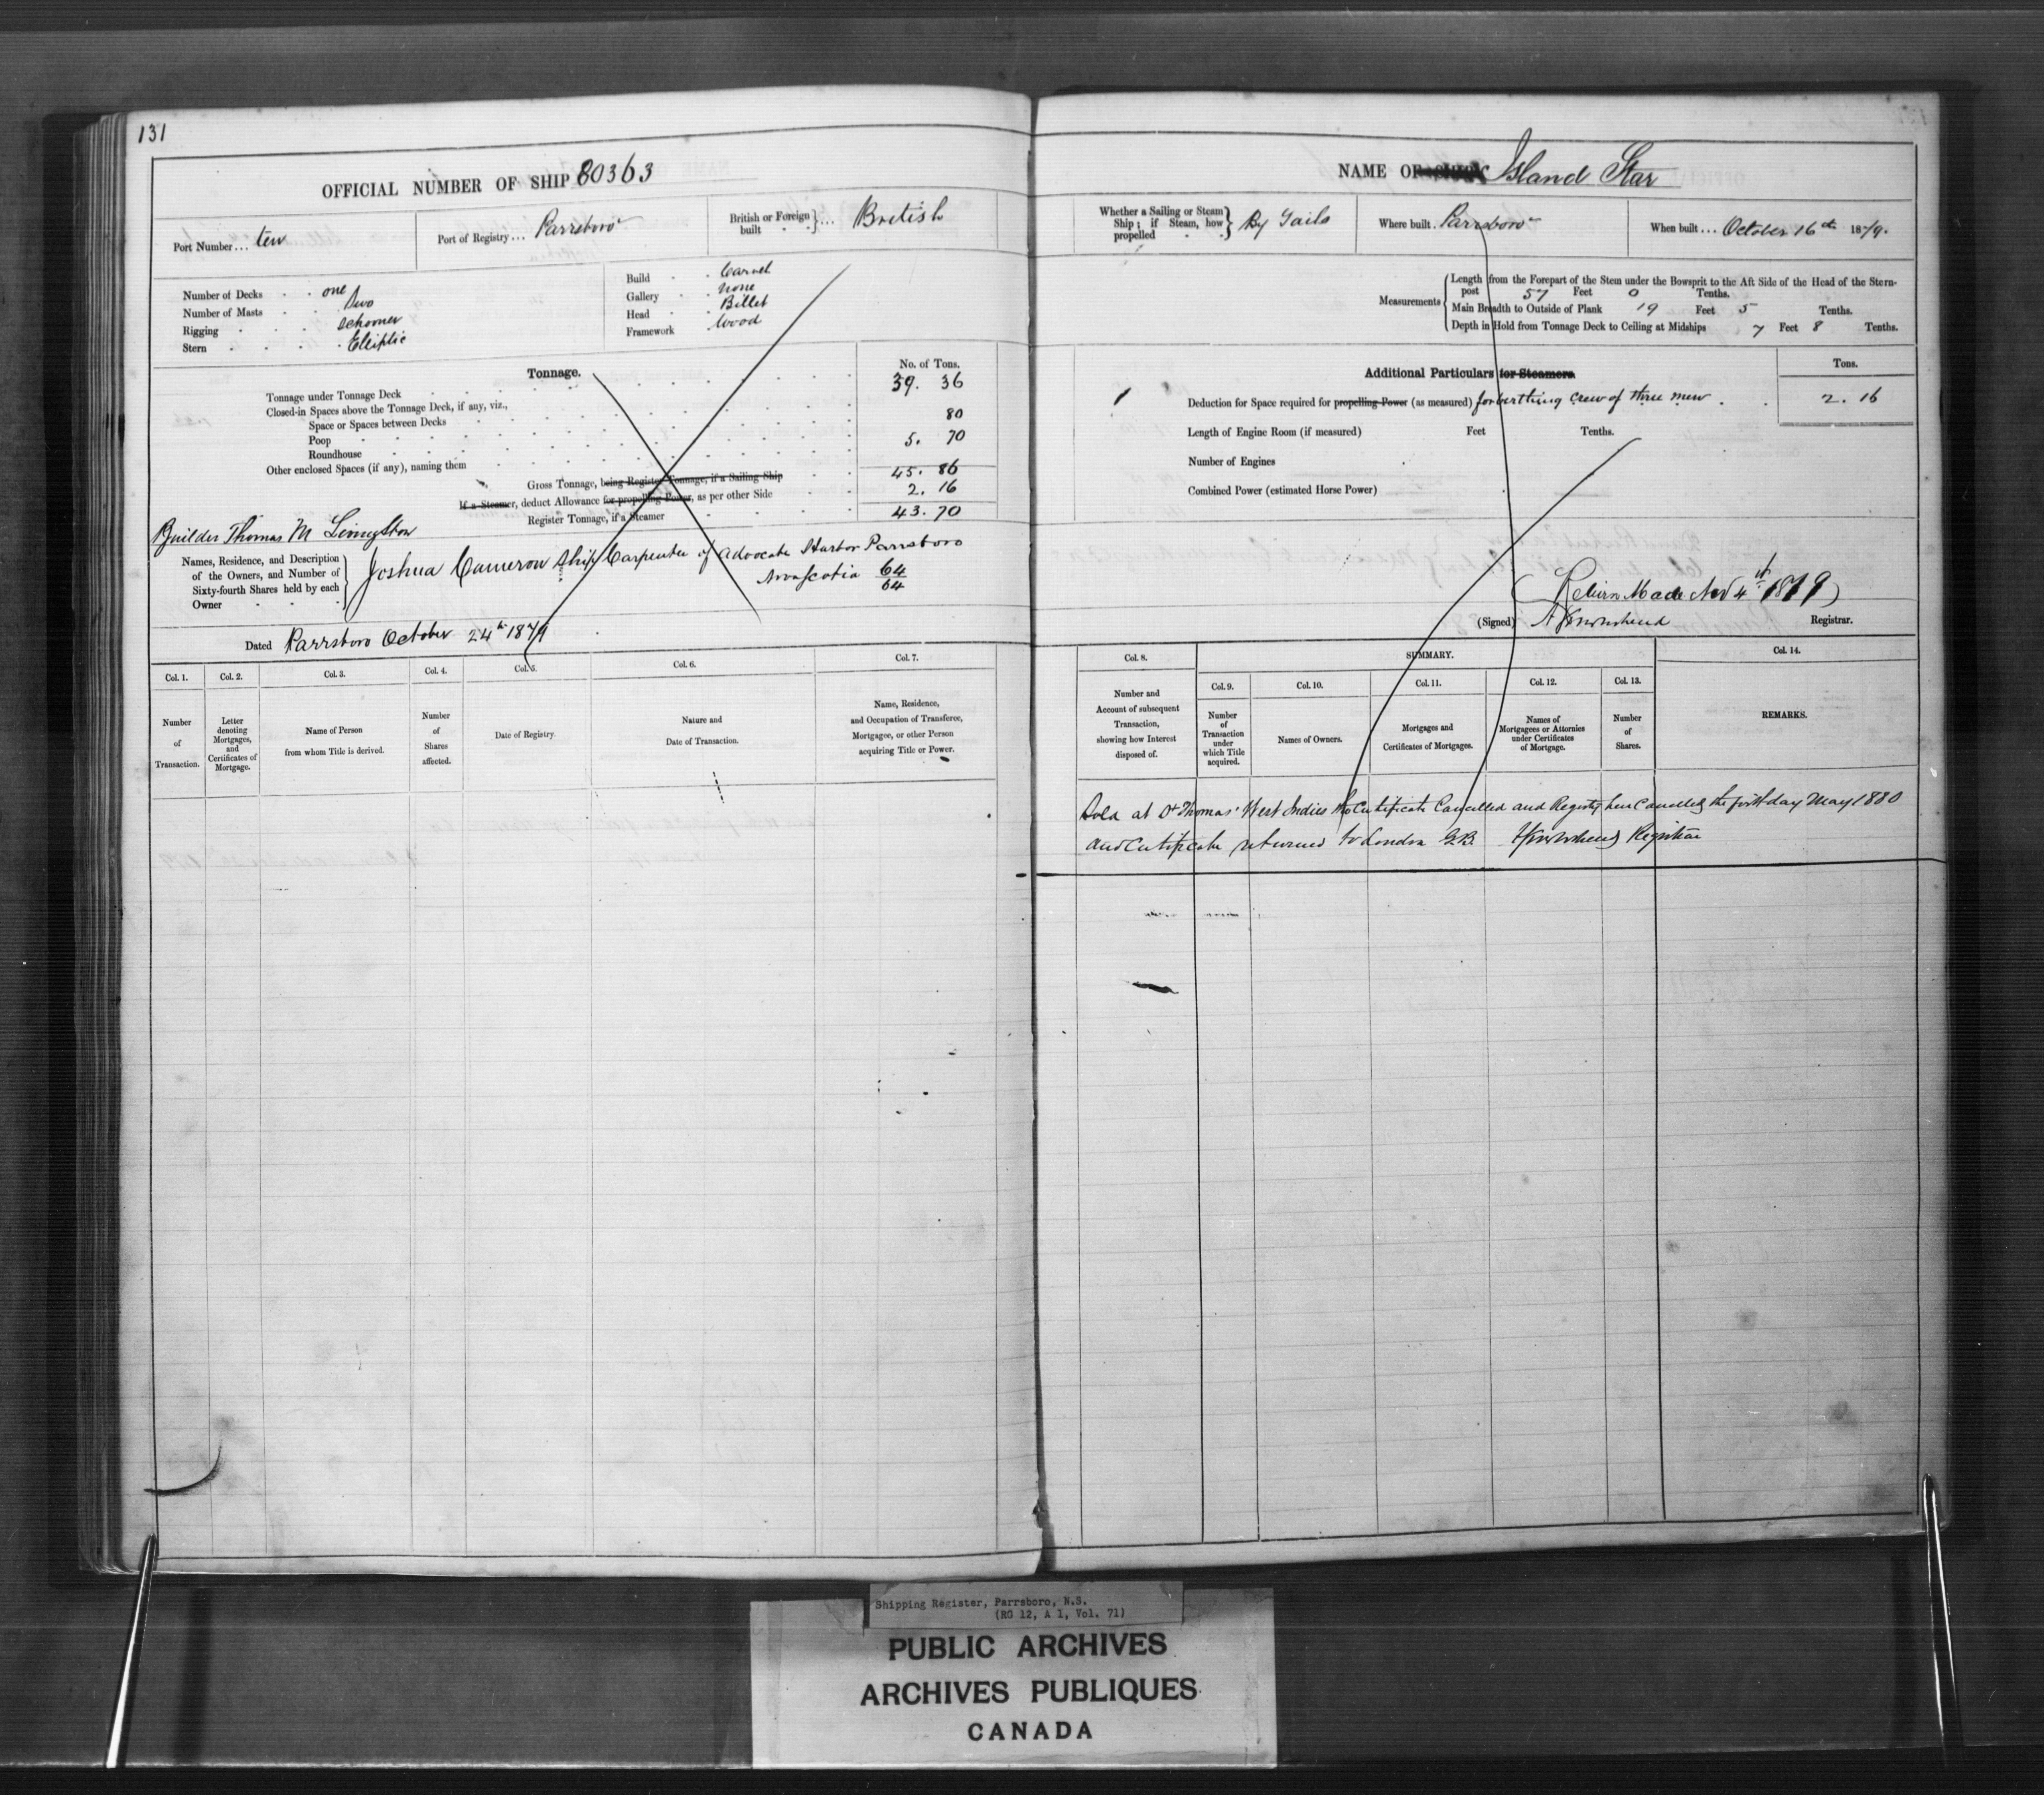 131
OFFICIAL NUMBER OF SHIP 80363
Port Number... ten
Port of Registry... Parrsboro
British or Foreign built ... British
Number of Decks . . one
Number of Masts . . Two
Rigging . . . Schooner
Stern . . . . Elliptic
Build . . Carvel
Gallery . . none
Head . . Billet
Framework . Wood
Tonnage.
No. of Tons.
Tonnage under Tonnage Deck 39. 36
Closed-in Spaces above the Tonnage Deck, if any, viz.,
Space or Spaces between Decks 80
Poop
Roundhouse 5. 70
Other enclosed Spaces (if any), naming them
Gross Tonnage, being Register Tonnage, if a Sailing Ship 45. 86
If a Steamer, deduct Allowance for propelling Power, as per other Side 2. 16
Register Tonnage, if a Steamer 43. 70
Builder Thomas M Livingston
Names, Residence, and Description of the Owners, and Number of Sixty-fourth Shares held by each Owner
Joshua Cameron Ship Carpenter of Advocate Harbor Parrsboro
Nova Scotia 64/64
Dated Parrsboro October 24th 1879
Col. 1. Col. 2. Col. 3. Col. 4. Col. 5. Col. 6. Col. 7.
Number of Transaction.
Letter denoting Mortgages, and Certificates of Mortgage.
Name of Person from whom Title is derived.
Number of Shares affected.
Date of Registry.
Nature and Date of Transaction.
Name, Residence, and Occupation of Transferee, Mortgagee, or other Person acquiring Title or Power.
NAME OF SHIP Island Star
Whether a Sailing or Steam Ship; if Steam, how propelled By Sails
Where built. Parrsboro
When built... October 16th 1879.
Measurements
Length from the Forepart of the Stem under the Bowsprit to the Aft Side of the Head of the Stern-
post 57 Feet 0 Tenths.
Main Breadth to Outside of Plank 19 Feet 5 Tenths.
Depth in Hold from Tonnage Deck to Ceiling at Midships 7 Feet 8 Tenths.
Additional Particulars for Steamers.
Tons.
1 Deduction for Space required for propelling Power (as measured) for berthing crew of three men . . 2. 16
Length of Engine Room (if measured) Feet Tenths.
Number of Engines
Combined Power (estimated Horse Power)
(Return Made Nov 4th 1879)
(Signed) A Townshend Registrar.
Col. 8. SUMMARY. Col. 14.
Col. 9. Col. 10. Col. 11. Col. 12. Col. 13.
Number and Account of subsequent Transaction, showing how Interest disposed of.
Number of Transaction under which Title acquired.
Names of Owners.
Mortgages and Certificates of Mortgages.
Names of Mortgagees or Attornies under Certificates of Mortgage.
Number of Shares.
REMARKS.
Sold at St Thomas' West Indies Certificate Cancelled and Registry here Cancelled the first day May 1880
and Certificate returned to London G.B. Townshend Registrar
Shipping Register, Parrsboro, N.S.
(RG 12, A 1, Vol. 71)
PUBLIC ARCHIVES
ARCHIVES PUBLIQUES
CANADA